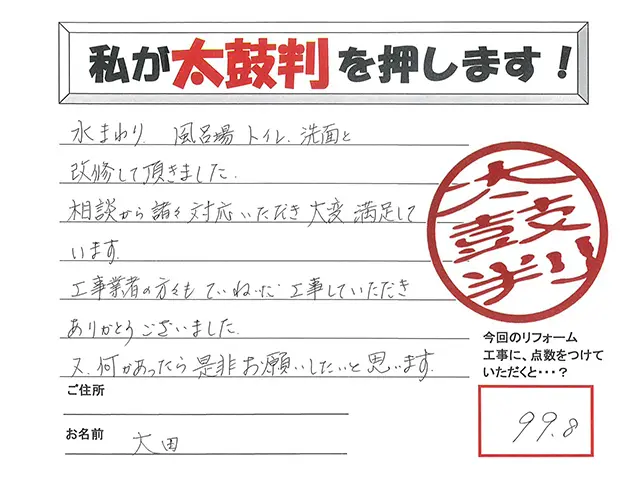 私が太鼓判を押します！
水まわり、風呂場トイレ、洗面と
改修して頂きました。
相談から諸々対応いただき大変満足して
います。
工事業者の方々もていねいに工事していただき
ありがとうございました。
又、何かあったら是非お願いしたいと思います。
太鼓判
今回のリフォーム
工事に、点数をつけて
いただくと・・・？
99.8
ご住所
お名前 大田